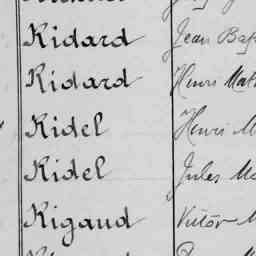 Ridard Jean Bap
Ridard Henri Mat
Ridel Henri M
Ridel Jules Ma
Rigaud Victor M